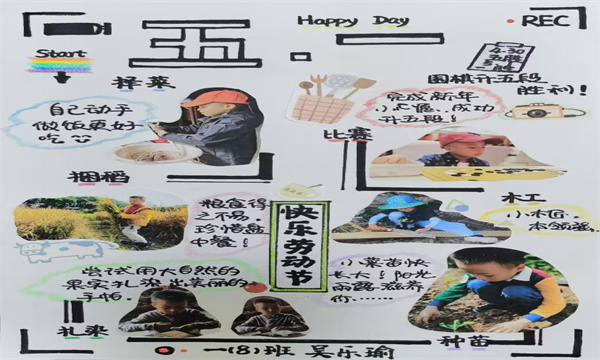 Happy Day
REC
Start
五.一
4.30
围棋升五段
胜利！
择菜
自己动手
做饭更好
吃
完成新年
小心愿、成功
升五段！
比赛
捆稻
粮食得
之不易，
珍惜盘
中餐！
快乐劳动节
木工
小木匠，
本领强
尝试用大自然的
果实扎染出美丽的
手帕。
小菜苗快
长大！阳光
雨露滋养
你……
扎染
种苗
一（8）班 吴乐瑜